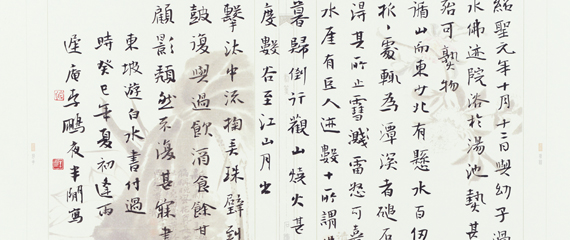 紹聖元年十月十二日與幼子過
水佛迹院浴於湯池熱甚
殆可熟物
循山而東少北有懸水百仞
折處輒為潭深者磓石
得其所止雪濺雷怒可喜
水崖有巨人迹數十所謂
暮歸倒行觀山燒火甚
度數谷至江山月出
擊汰中流掬弄珠璧到
鼓復與過飲酒食餘甘
顧影頹然不復甚寐書
東坡遊白水書付過
時癸巳年夏初逢雨
遲庵李鵬夜半閒寫